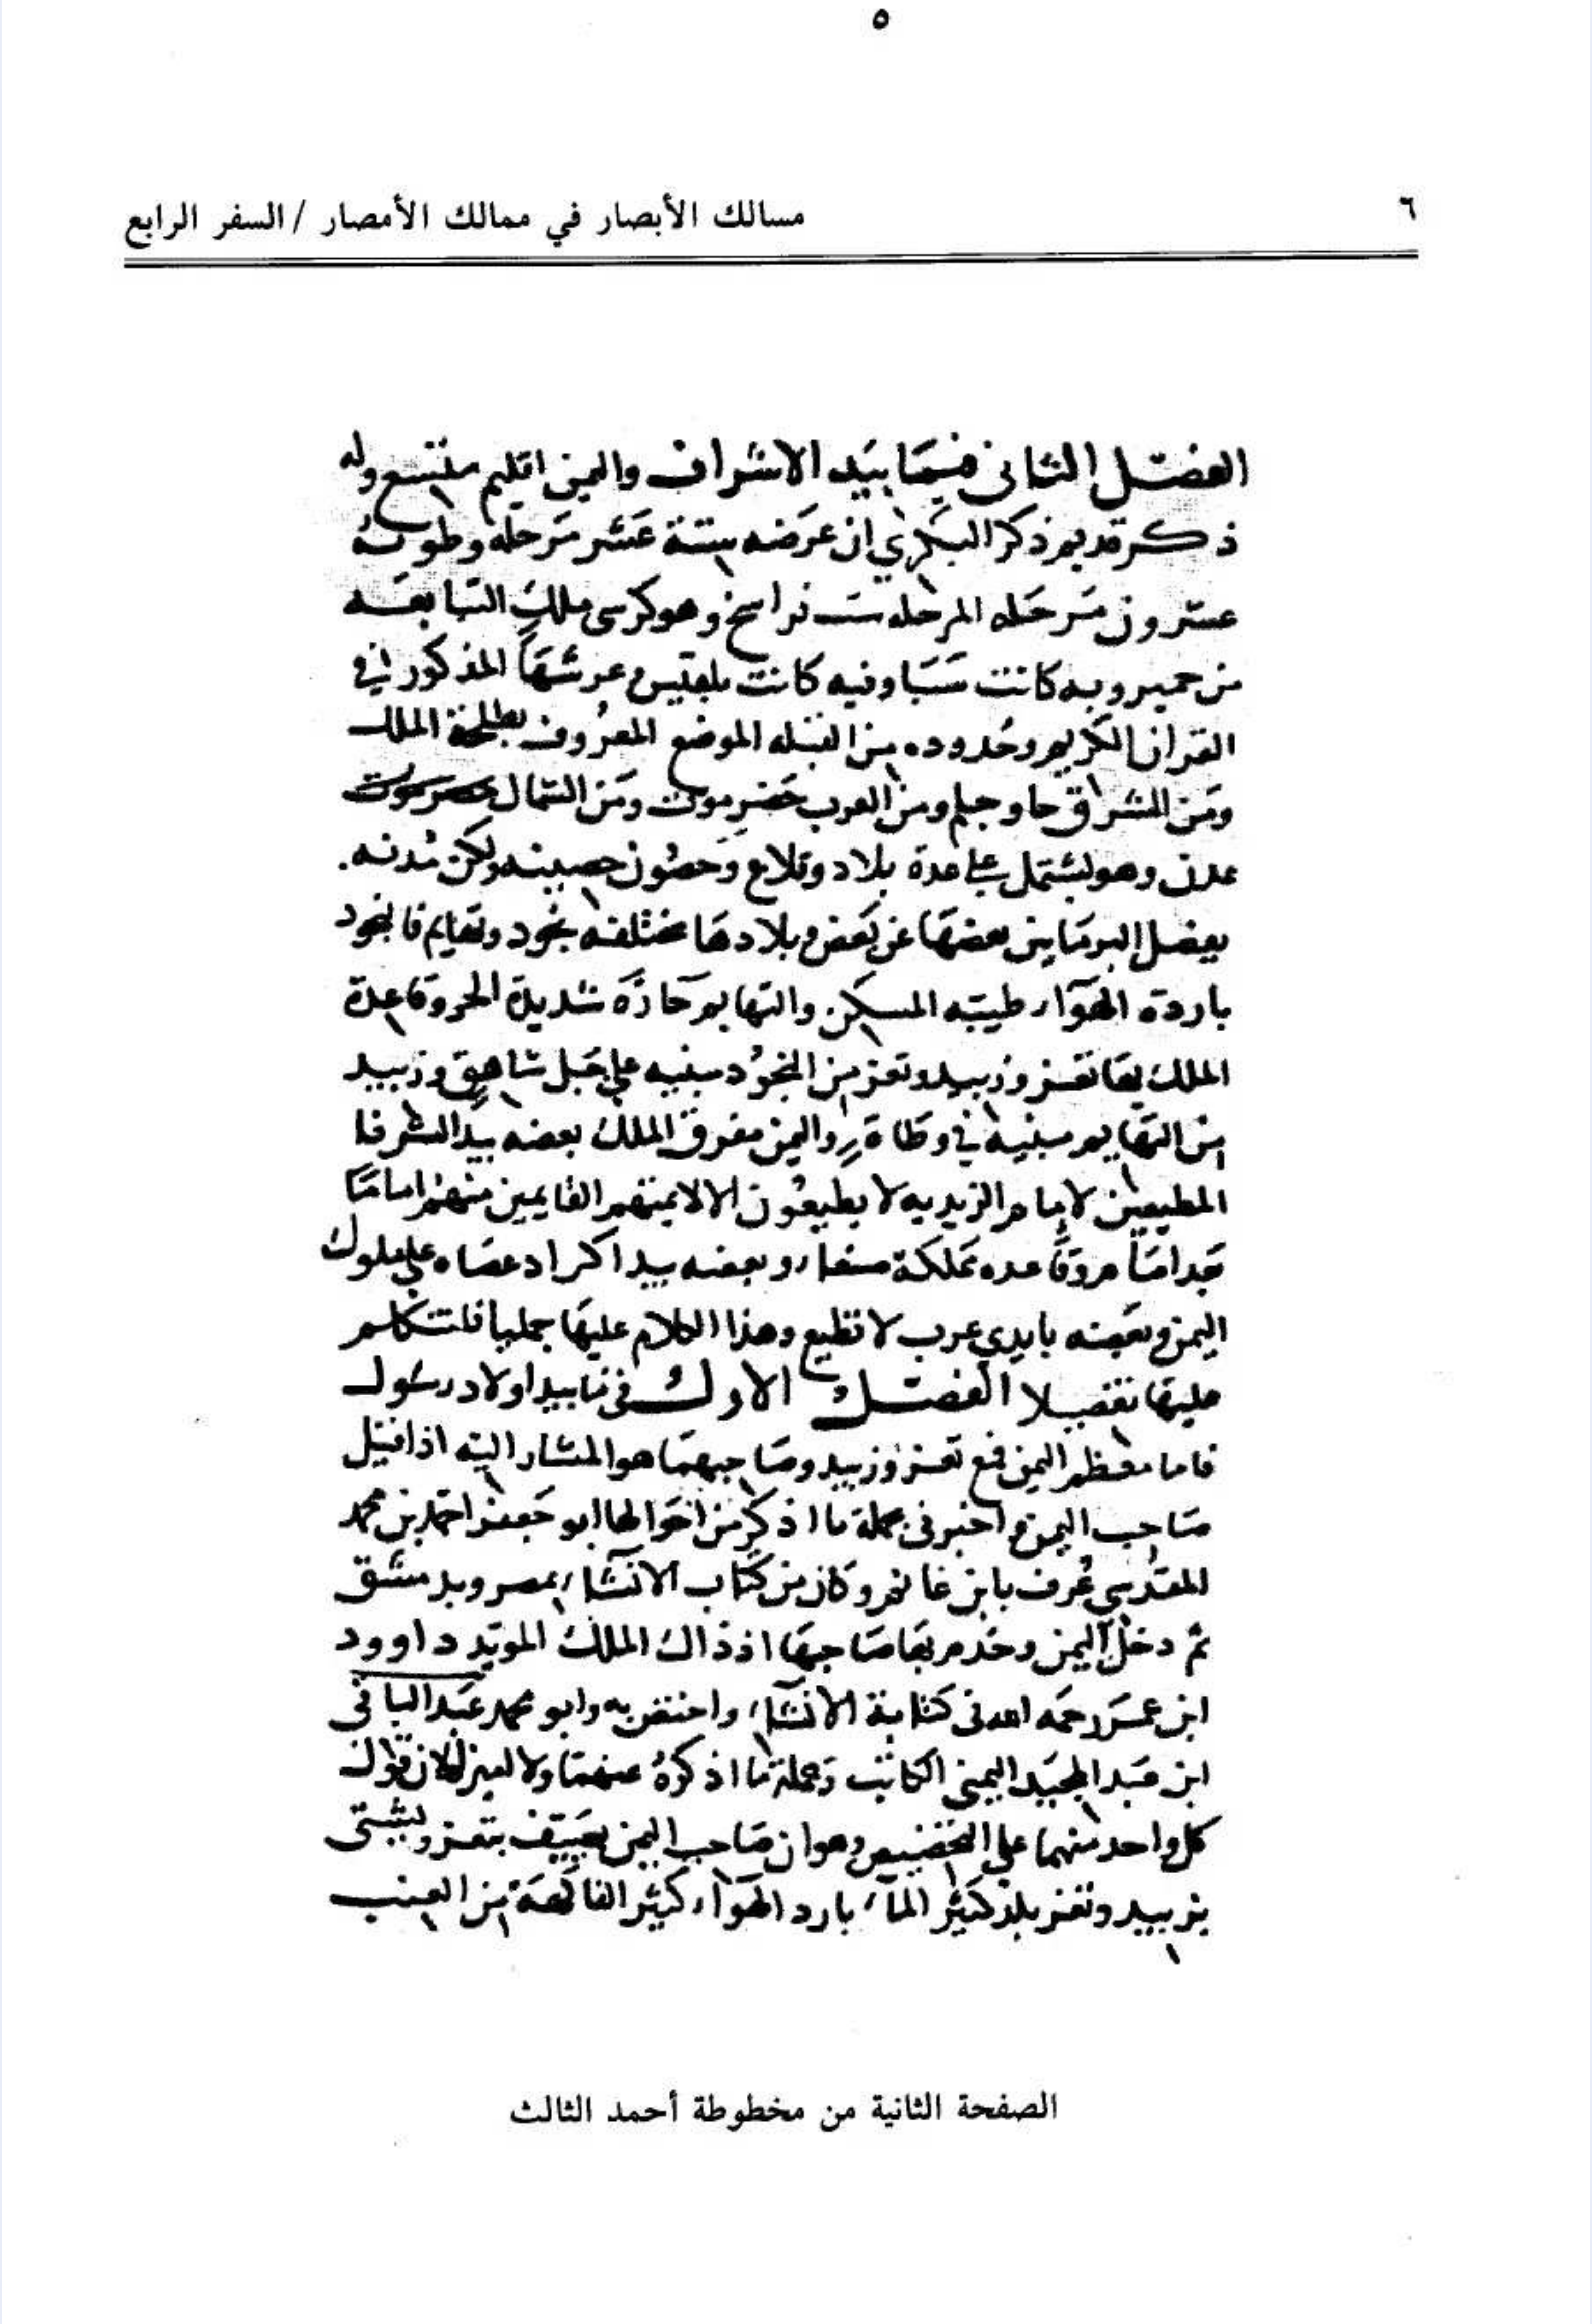 ٥
٦
مسالك الأبصار في ممالك الأمصار / السفر الرابع
الفصل الثاني فيما بيد الاشراف واليمن اقليم متسع وله
ذكر قديم ذكر البكري ان عرضه ستة عشر مرحله وطوله
عشرون مرحله المرحله ست فراسخ وهو كرسي ملك التبابعه
من حمير وبه كانت سبا وفيه كانت بلقيس وعرشها المذكور في
القران الكريم وحدوده من القبله الموضع المعروف بطلحة الملك
ومن المشراق حا وجلم ومن الغرب حضرموت ومن الشمال حضرموت
عدن وهو يشتمل على عدة بلاد وقلاع وحصون حصينه ولكن مدنه
يفصل البر ما بين بعضها عن بعض وبلادها مختلفه نجود وتهايم فالنجود
باردة الهوآء طيبه المسكن والتهايم حارة شديدة الحر وقاعدة
الملك بها تعز وزبيد وتعز من النجود مبنيه على جبل شاهق وزبيد
من التهايم مبنيه في وطاة واليمن مفرق الملك بعضه بيد الشرفا
المطيعين لامام الزيديه لا يطيعون الا لايمتهم القايمين منهم اماما
بعد امام وقاعده مملكة صنعاء وبعضه بيد اكراد عصاه على ملوك
اليمن وبعضه بايدي عرب لا تطيع وهذا الكلام عليها جمليا فلنتكلم
عليها تفصيلا الفصل الاول في ما بيد اولاد رسول
فاما معظم اليمن فمع تعز وزبيد وصاحبهما هو المشار اليه اذا قيل
صاحب اليمن واخبرني جملة ما اذكر من احوالها ابو جعفر احمد بن محمد
المقدسي عرف بابن غانم وكان من كتاب الانشآء بمصر وبدمشق
ثم دخل اليمن وخدم بها صاحبها اذ ذاك الملك المويد داوود
ابن عمر رحمه الله في كتابة الانشآء واختص به وابو محمد عبد الباقي
ابن عبد المجيد اليمني الكاتب وجملة ما اذكره عنهما ولا لعزلان قول
كل واحد منهما على التخصيص وهو ان صاحب اليمن يصيف بتعز ويشتي
بزبيد وتعز بلد كثير المآء بارد الهوآء كثير الفاكهة من العنب
الصفحة الثانية من مخطوطة أحمد الثالث